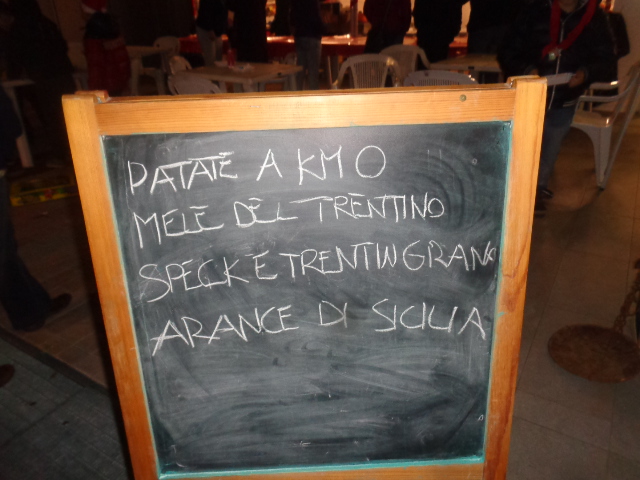 PATATE A KM 0
MELE DEL TRENTINO
SPECK E TRENTINGRANA
ARANCE DI SICILIA